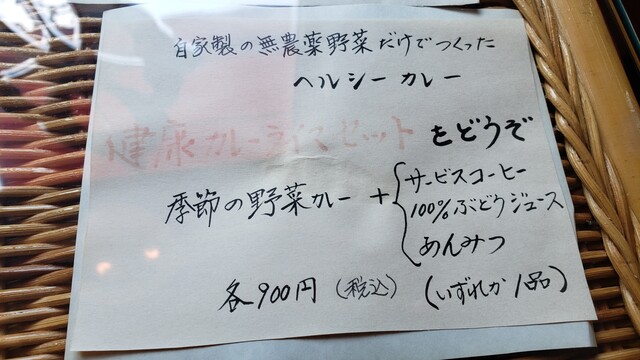 自家製の無農薬野菜だけでつくった
ヘルシーカレー
健康カレーライスセットをどうぞ
季節の野菜カレー + { サービスコーヒー
100%ぶどうジュース
あんみつ
各900円 (税込) (いずれか1品)